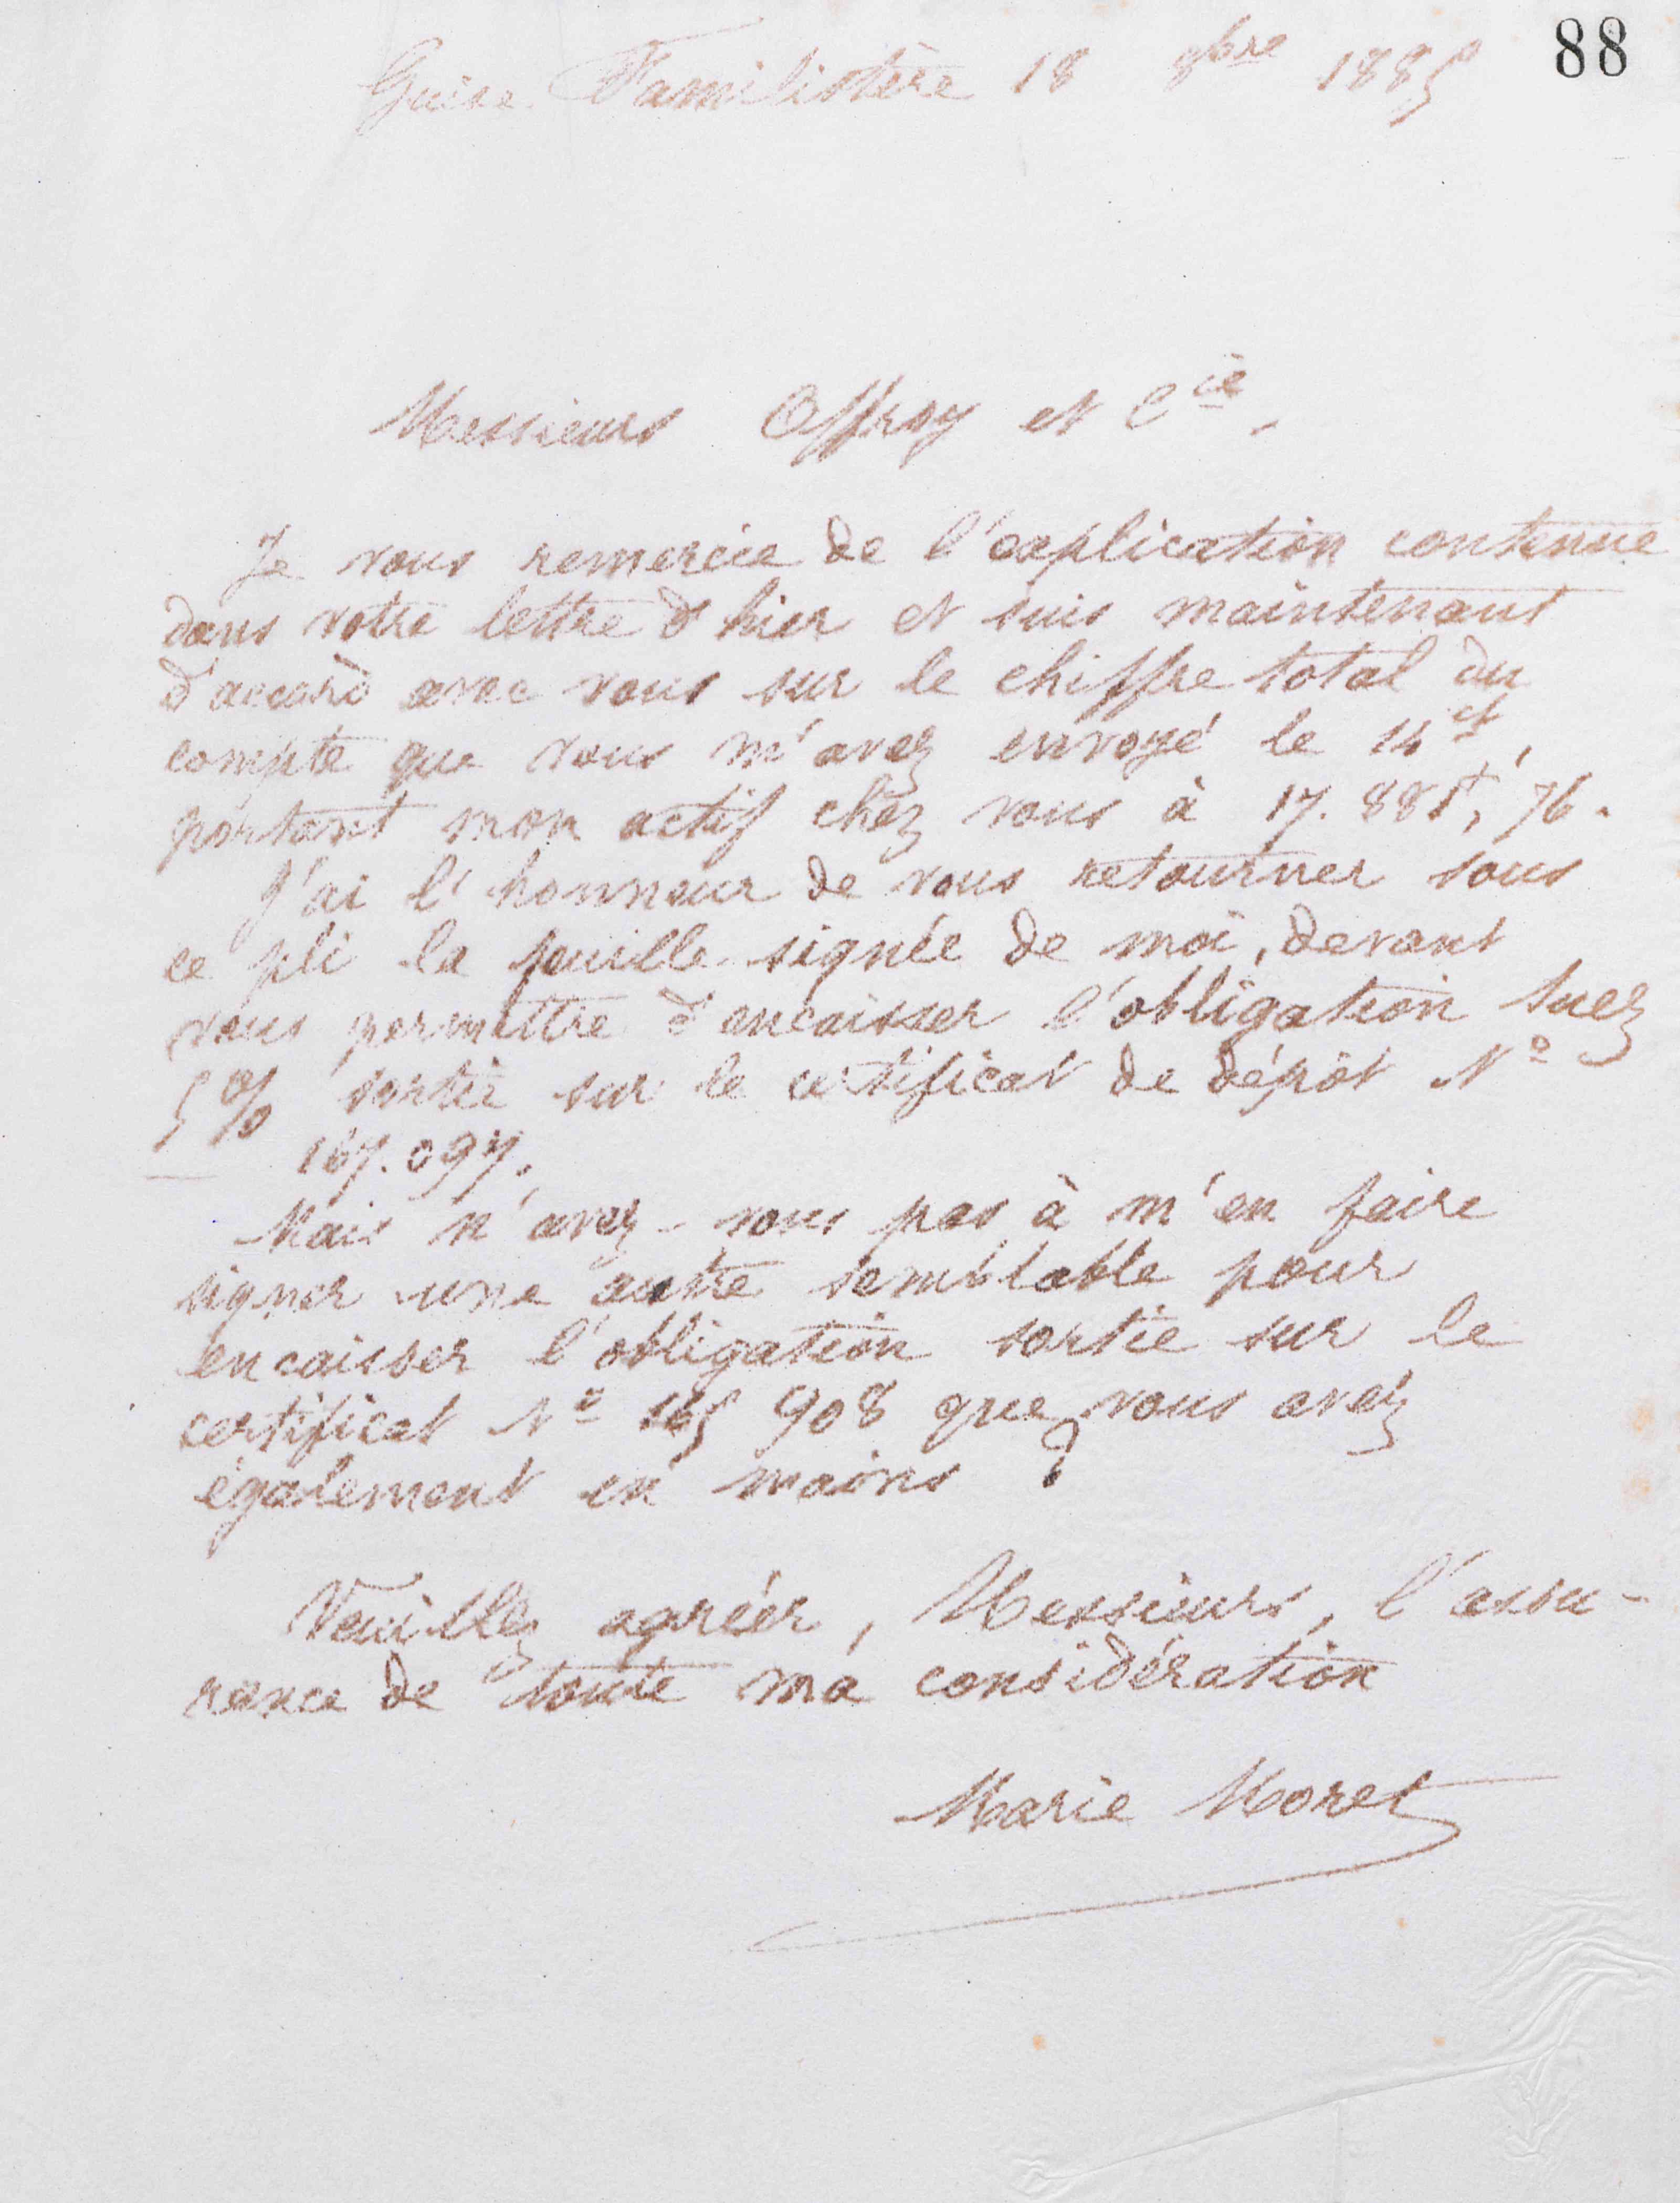 88
Guise Familistère 18 8bre 1885
Messieurs Offroy et Cie.
Je vous remercie de l'explication contenue
dans votre lettre d'hier et suis maintenant
d'accord avec vous sur le chiffre total du
compte que vous m'avez envoyé le 14 ct,
portant mon actif chez vous à 17.881f, 76.
J'ai l'honneur de vous retourner sous
ce pli la feuille signée de moi, devant
vous permettre d'encaisser l'obligation Suez
5 % sortie sur le certificat de dépôt No
167.097.
Mais n'avez-vous pas à m'en faire
signer une autre semblable pour
encaisser l'obligation sortie sur le
certificat No 165 908 que vous avez
également en mains ?
Veuillez agréer, Messieurs, l'assu-
rance de toute ma considération
Marie Moret